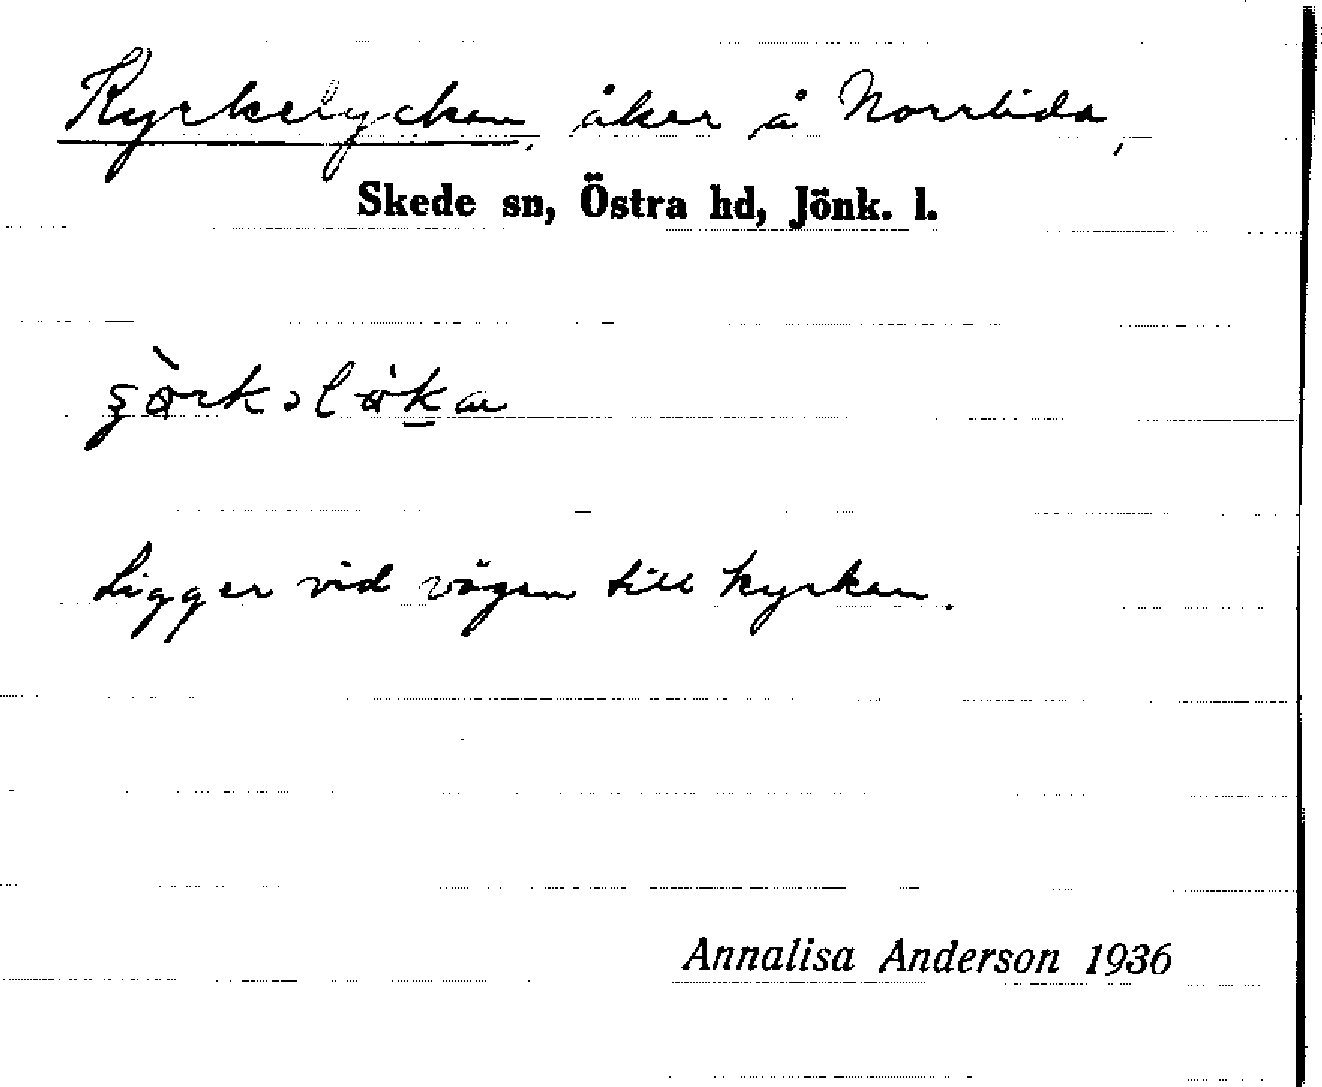 Kyrkelyckan, åker å Norrlida,
Skede sn, Östra hd, Jönk. l.
Ligger vid vägen till kyrkan.
Annalisa Anderson 1936